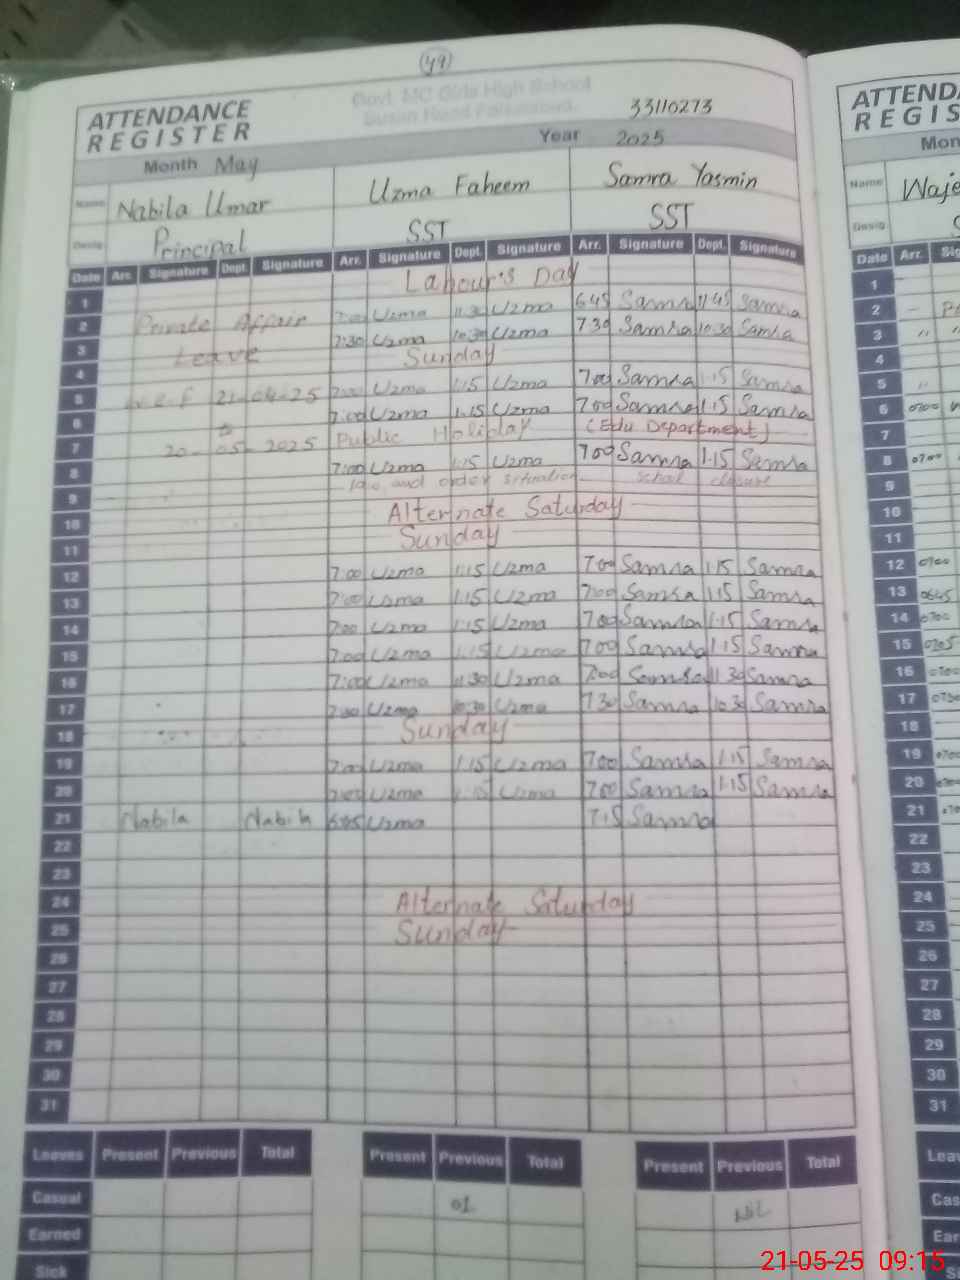 49
ATTENDANCE REGISTER
Govt. MC Girls High School
33110273
Month May Year 2025
Name Nabila Umar Uzma Faheem Samra Yasmin
Desig Principal SST SST
Date Arr. Signature Dept. Signature Arr. Signature Dept. Signature Arr. Signature Dept. Signature
1 Labour's Day
2 Private Affair 7:00 Uzma 11:30 Uzma 6:45 Samra 11:45 Samra
3 Leave 7:30 Uzma 10:30 Uzma 7:30 Samra 10:30 Samra
4 Sunday
5 w.e.f 21-04-25 7:00 Uzma 1:15 Uzma 7:00 Samra 1:15 Samra
6 to 7:00 Uzma 1:15 Uzma 7:00 Samra 1:15 Samra
7 20-05-2025 Public Holiday (Edu Department)
8 7:00 Uzma 1:15 Uzma 7:00 Samra 1:15 Samra
9 law and order situation school closure
10 Alternate Saturday
11 Sunday
12 7:00 Uzma 1:15 Uzma 7:00 Samra 1:15 Samra
13 7:00 Uzma 1:15 Uzma 7:00 Samra 1:15 Samra
14 7:00 Uzma 1:15 Uzma 7:00 Samra 1:15 Samra
15 7:00 Uzma 1:15 Uzma 7:00 Samra 1:15 Samra
16 7:00 Uzma 11:30 Uzma 7:00 Samra 11:30 Samra
17 7:30 Uzma 10:30 Uzma 7:30 Samra 10:30 Samra
18 Sunday
19 7:00 Uzma 1:15 Uzma 7:00 Samra 1:15 Samra
20 7:00 Uzma 1:15 Uzma 7:00 Samra 1:15 Samra
21 Nabila Nabila 6:45 Uzma 7:15 Samra
22
23
24 Alternate Saturday
25 Sunday
26
27
28
29
30
31
Leaves Present Previous Total Present Previous Total Present Previous Total
Casual 01 Nil
Earned
Sick
Name
Desig
Date Arr.
1
2
3
4
5
6 0700
7
8 0700
9
10
11
12 0700
13 0645
14 0700
15 0705
16 0700
17 0730
18
19 0700
20 0700
21
22
23
24
25
26
27
28
29
30
31
21-05-25 09:15